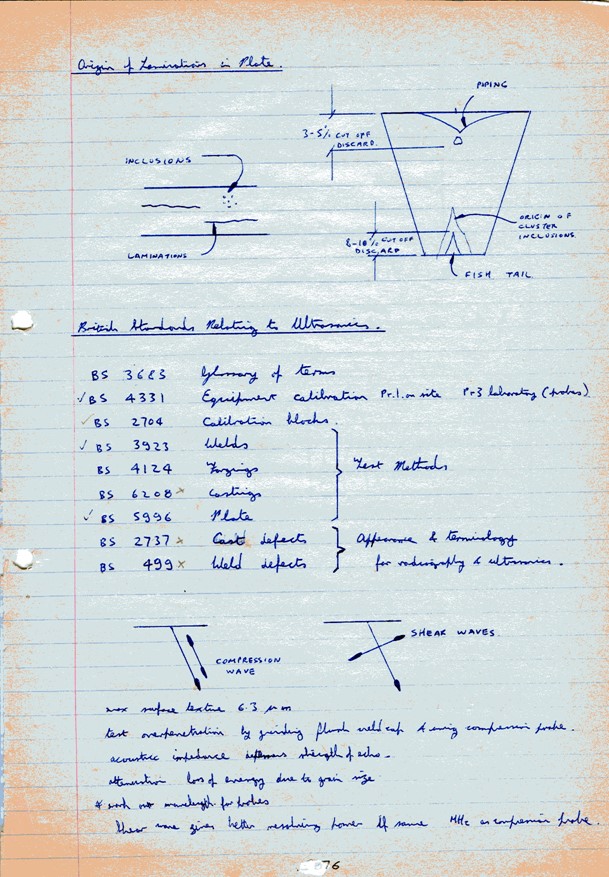 Origin of Laminations in Plate.
PIPING
3-5% CUT OFF
DISCARD.
INCLUSIONS
ORIGIN OF
CLUSTER
INCLUSIONS.
8-10% CUT OFF
DISCARD
LAMINATIONS
FISH TAIL.
British Standards Relating to Ultrasonics.
BS 3683 Glossary of terms
✓ BS 4331 Equipment calibration Pr.1. on site Pr3 laboratory (probes)
✓ BS 2704 Calibration blocks.
✓ BS 3923 Welds
BS 4124 Forgings
Test Methods
BS 6208 x Castings
✓ BS 5996 Plate
BS 2737 x Cast defects
Appearance & terminology
BS 499 x Weld defects
for radiography & ultrasonics.
COMPRESSION
WAVE
SHEAR WAVES
max surface texture 6.3 μm
test overpenetration by grinding flush weld cap & using compression probe.
acoustic impedance strength of echo.
attenuation loss of energy due to grain size
* work out wavelength for probes
Shear wave gives better resolving power if same MHz as compression probe.
76